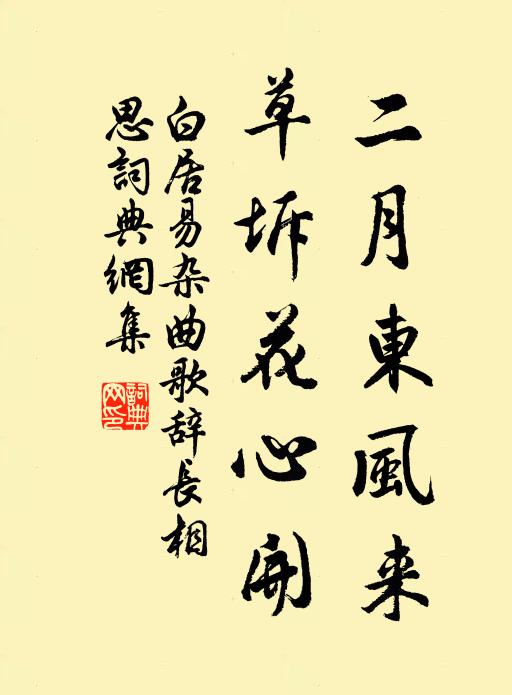 二月東風来
草坼花心開
白居易杂曲歌辞長相
思詞典網集
詞典
网印